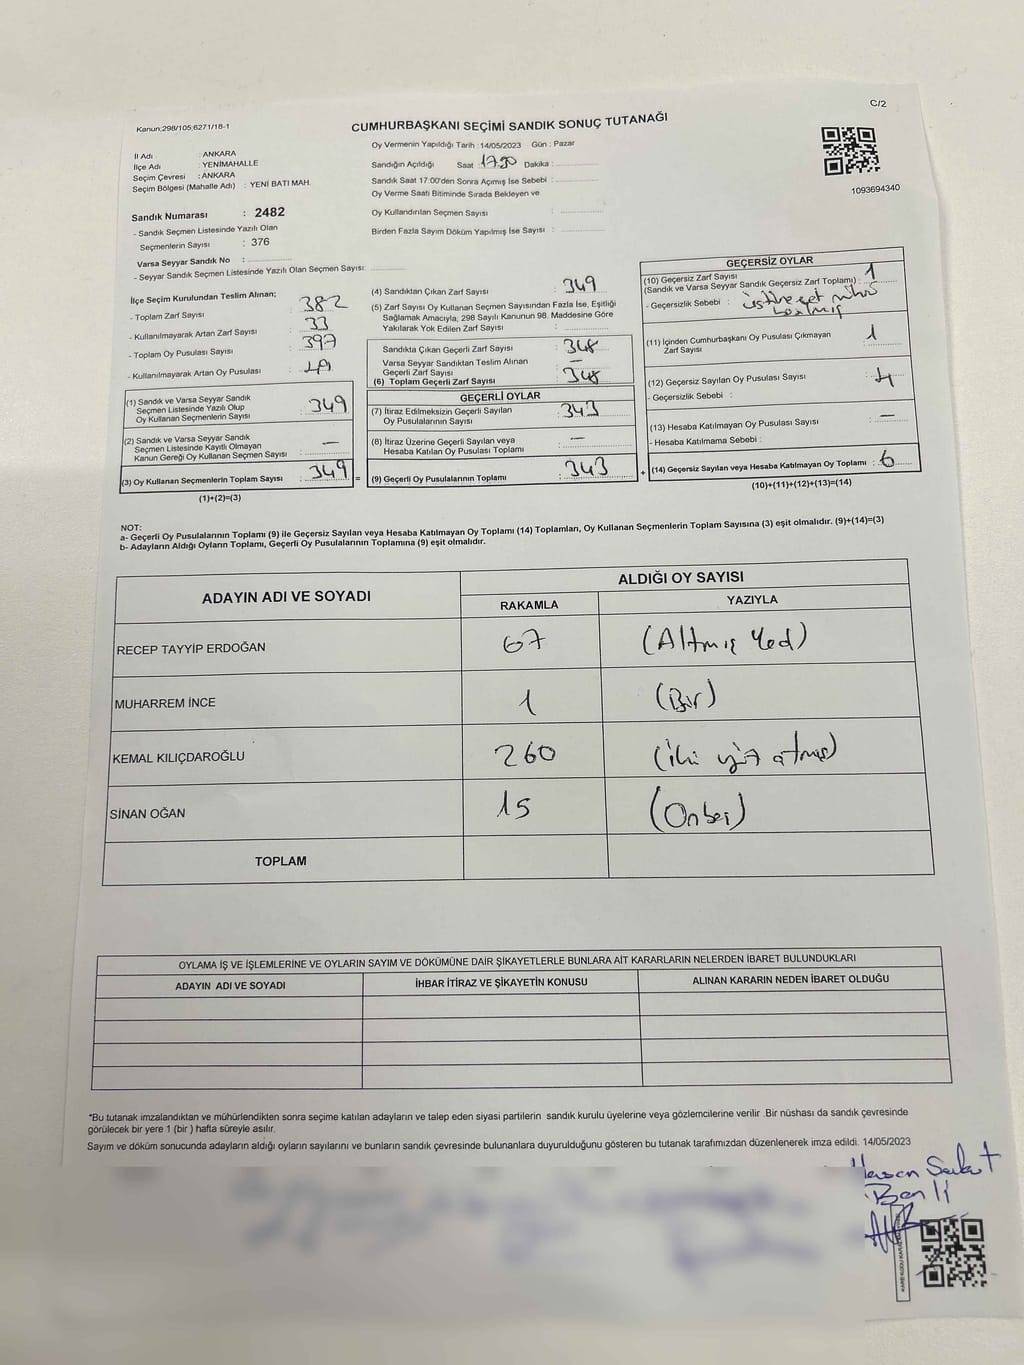 C/2
Kanun;298/105;6271/18-1
CUMHURBAŞKANI SEÇİMİ SANDIK SONUÇ TUTANAĞI
İl Adı : ANKARA
İlçe Adı : YENİMAHALLE
Seçim Çevresi : ANKARA
Seçim Bölgesi (Mahalle Adı) : YENİ BATI MAH.
Oy Vermenin Yapıldığı Tarih : 14/05/2023 Gün : Pazar
Sandığın Açıldığı Saat 17.00 Dakika :
Sandık Saat 17:00'den Sonra Açımış İse Sebebi :
Oy Verme Saati Bitiminde Sırada Bekleyen ve
Oy Kullandırılan Seçmen Sayısı :
Birden Fazla Sayım Döküm Yapılmış İse Sayısı :
1093694340
Sandık Numarası : 2482
- Sandık Seçmen Listesinde Yazılı Olan
Seçmenlerin Sayısı : 376
Varsa Seyyar Sandık No :
- Seyyar Sandık Seçmen Listesinde Yazılı Olan Seçmen Sayısı:
İlçe Seçim Kurulundan Teslim Alınan;
- Toplam Zarf Sayısı : 382
- Kullanılmayarak Artan Zarf Sayısı : 33
- Toplam Oy Pusulası Sayısı : 397
- Kullanılmayarak Artan Oy Pusulası :
(1) Sandık ve Varsa Seyyar Sandık
Seçmen Listesinde Yazılı Olup
Oy Kullanan Seçmenlerin Sayısı : 349
(2) Sandık ve Varsa Seyyar Sandık
Seçmen Listesinde Kayıtlı Olmayan
Kanun Gereği Oy Kullanan Seçmen Sayısı : —
(3) Oy Kullanan Seçmenlerin Toplam Sayısı : 349
(1)+(2)=(3)
=
(4) Sandıktan Çıkan Zarf Sayısı : 349
(5) Zarf Sayısı Oy Kullanan Seçmen Sayısından Fazla İse, Eşitliği
Sağlamak Amacıyla, 298 Sayılı Kanunun 98. Maddesine Göre
Yakılarak Yok Edilen Zarf Sayısı :
Sandıkta Çıkan Geçerli Zarf Sayısı : 348
Varsa Seyyar Sandıktan Teslim Alınan
Geçerli Zarf Sayısı : —
(6) Toplam Geçerli Zarf Sayısı : 348
GEÇERLİ OYLAR
(7) İtiraz Edilmeksizin Geçerli Sayılan
Oy Pusulalarının Sayısı : 343
(8) İtiraz Üzerine Geçerli Sayılan veya
Hesaba Katılan Oy Pusulası Toplamı : —
(9) Geçerli Oy Pusulalarının Toplamı : 343
+
GEÇERSİZ OYLAR
(10) Geçersiz Zarf Sayısı
(Sandık ve Varsa Seyyar Sandık Geçersiz Zarf Toplamı) : 1
- Geçersizlik Sebebi :
(11) İçinden Cumhurbaşkanı Oy Pusulası Çıkmayan
Zarf Sayısı : 1
(12) Geçersiz Sayılan Oy Pusulası Sayısı : 4
- Geçersizlik Sebebi :
(13) Hesaba Katılmayan Oy Pusulası Sayısı : —
- Hesaba Katılmama Sebebi :
(14) Geçersiz Sayılan veya Hesaba Katılmayan Oy Toplamı : 6
(10)+(11)+(12)+(13)=(14)
NOT:
a- Geçerli Oy Pusulalarının Toplamı (9) ile Geçersiz Sayılan veya Hesaba Katılmayan Oy Toplamı (14) Toplamları, Oy Kullanan Seçmenlerin Toplam Sayısına (3) eşit olmalıdır. (9)+(14)=(3)
b- Adayların Aldığı Oyların Toplamı, Geçerli Oy Pusulalarının Toplamına (9) eşit olmalıdır.
ADAYIN ADI VE SOYADI
ALDIĞI OY SAYISI
RAKAMLA YAZIYLA
RECEP TAYYİP ERDOĞAN 67 (Altmış Yed)
MUHARREM İNCE 1 (Bir)
KEMAL KILIÇDAROĞLU 260 (iki yüz atmış)
SİNAN OĞAN 15 (Onbeş)
TOPLAM
OYLAMA İŞ VE İŞLEMLERİNE VE OYLARIN SAYIM VE DÖKÜMÜNE DAİR ŞİKAYETLERLE BUNLARA AİT KARARLARIN NELERDEN İBARET BULUNDUKLARI
ADAYIN ADI VE SOYADI İHBAR İTİRAZ VE ŞİKAYETİN KONUSU ALINAN KARARIN NEDEN İBARET OLDUĞU
*Bu tutanak imzalandıktan ve mühürlendikten sonra seçime katılan adayların ve talep eden siyasi partilerin sandık kurulu üyelerine veya gözlemcilerine verilir .Bir nüshası da sandık çevresinde
görülecek bir yere 1 (bir ) hafta süreyle asılır.
Sayım ve döküm sonucunda adayların aldığı oyların sayılarını ve bunların sandık çevresinde bulunanlara duyurulduğunu gösteren bu tutanak tarafımızdan düzenlenerek imza edildi. 14/05/2023
Benli